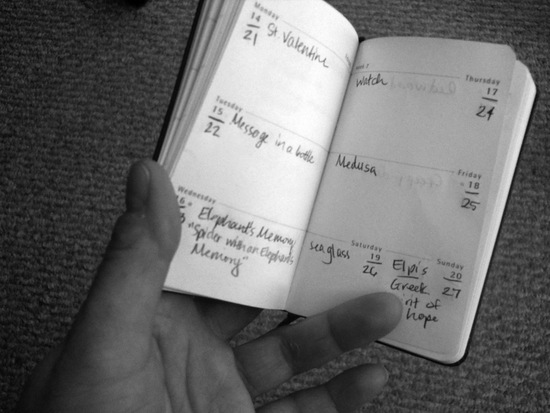 Monday
14
21
St Valentine
Tuesday
15
22
Message in a bottle
Wednesday
Elephant's Memory
"Spider with an Elephant's
Memory"
Week 7
Watch
Thursday
17
24
Medusa
Friday
18
25
sea glass
Saturday
19
26
Elpis
Greek
rit of
hope
Sunday
20
27